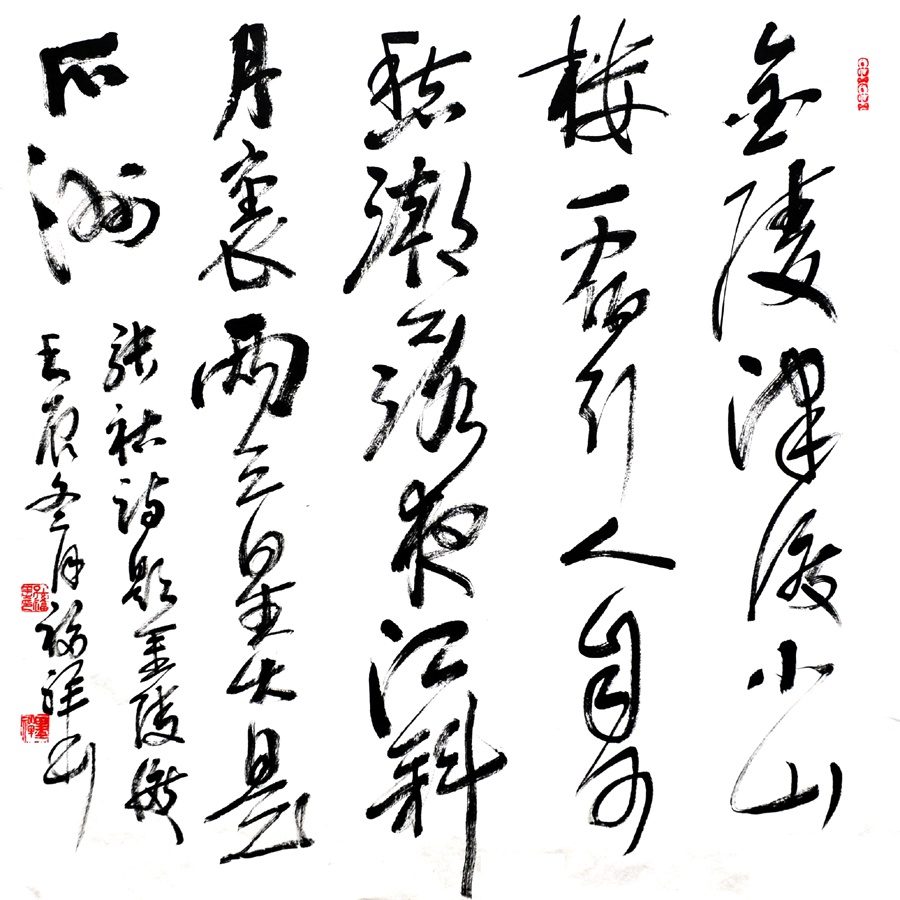 金陵津渡小山
樓一宿行人自可
愁潮落夜江斜
月裏兩三星火是
瓜洲
張祜詩題金陵渡
壬辰冬月福祥書